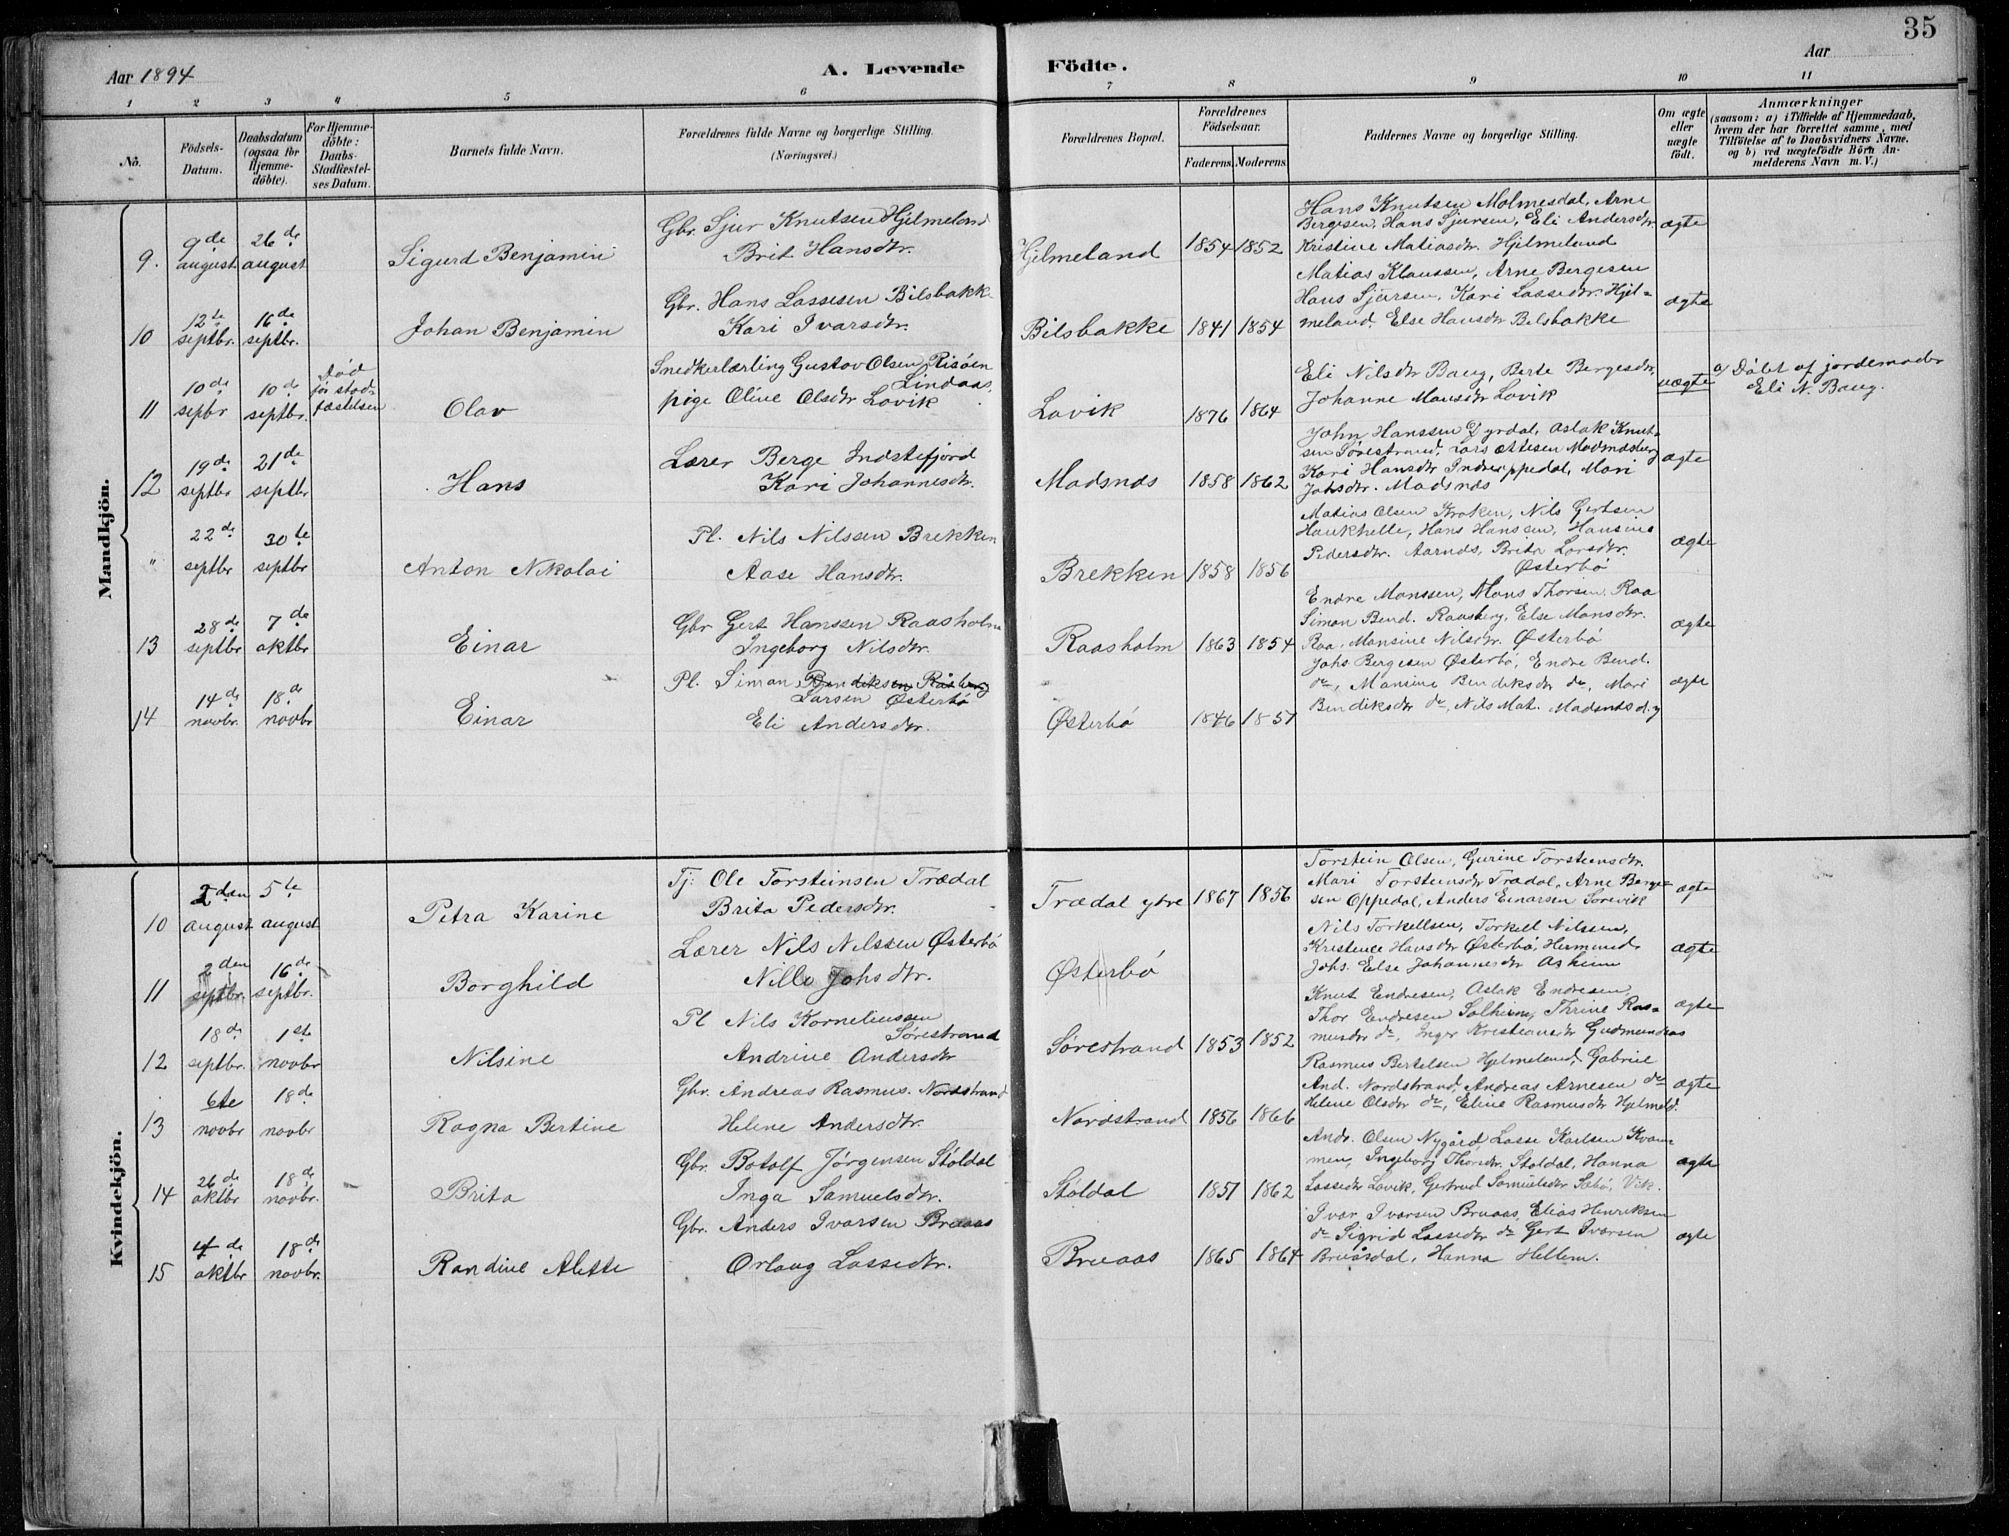 35
Aar 1894
A. Levende
Födte.
Aar
1
2
3
4
5
6
7
8
9
10
11
No.
Födsels-
Datum.
Daabsdatum
(ogsaa for
Hjemme-
döbte).
For Hjemme-
döbte:
Daabs-
Stadfæstel-
ses Datum.
Barnets fulde Navn.
Forældrenes fulde Navne og borgerlige Stilling.
(Næringsvei.)
Forældrenes Bopæl.
Forældrenes
Födselsaar.
Faderens.
Moderens.
Faddernes Navne og borgerlige Stilling.
Om ægte
eller
uægte
födt.
Anmærkninger
(saasom: a) i Tilfælde af Hjemmedaab,
hvem der har forrettet samme, med
Tilföielse af to Daabsvidners Navne.
og b) ved uægtefödte Börn An-
melderens Navn m. V.)
Mandkjön.
9. 9de august 26de august
Sigurd Benjamin
Gbr. Sjur Knutsen Hjelmeland
Brit Hansdtr.
Hjelmeland 1854 1852
Hans Knutsen Molmesdal, Arne
Bergesen, Hans Sjursen, Eli Andersdtr.
Kristine Matiasdtr. Hjelmeland
ægte
10 12te septbr. 16de septbr.
Johan Benjamin
Gbr. Hans Lassesen Bilsbakke
Kari Ivarsdtr.
Bilsbakke 1841 1854
Matias Klaussen, Arne Bergesen
Hans Sjursen, Kari Lassedtr. Hjel-
meland, Else Hansdtr Bilsbakke
ægte
11 10de septbr 10de septbr.
Död
för stad-
fæstelsen
Olav
Snedkerlærling Gustav Olsen Risöen
Lindaas,
pige Oline Olsdtr Lavik
Lavik 1876 1864
Eli Nilsdtr Baug, Berte Bergesdtr.
Johanne Monsdtr Lavik
uægte
a) Döbt af jordemoder
Eli N. Baug.
12 19de septbr 21de septbr
Hans
Lærer Berge Indstefjord
Kari Johannesdtr.
Madsnæs 1858 1862
John Hanssen Dyrdal, Aslak Knut-
sen Sørestrand, Lars Ottesen Madsnæsberg
Kari Hansdtr Indreoppedal, Mari
Johsdtr. Madsnæs
ægte
" 22de septbr 30te septbr
Anton Nikolai
Pl. Nils Nilssen Brekken
Aase Hansdtr.
Brekken 1858 1856
Matias Olsen Kraken, Nils Gertsen
Haukhelle, Hans Hanssen, Hansine
Pedersdtr. Aarnæs, Brita Larsdtr.
Østerbö
ægte
13 28de septbr 7de oktbr
Einar
Gbr Gert Hanssen Raasholm
Ingeborg Nilsdtr.
Raasholm 1863 1854
Endre Monssen, Mons Thorsen Raa
Simon Bend. Raasberg, Else Monsdtr.
Raa, Mansine Nilsdtr. Østerbö
ægte
14 14de novbr. 18de novbr
Einar
Pl. Simon Bendiksen Råsberg
Larsen Østerbö
Eli Andersdtr.
Østerbö 1846 1857
Johs Bergesen Østerbö, Endre Bend.
do, Mansine Bendiksdtr do, Mari
Bendiksdtr do, Nils Mat. Madsnæs d.y
ægte
Kvindekjön.
10 2den august 5te august
Petra Karine
Tj. Ole Torsteinsen Trædal
Brita Pedersdtr.
Trædal ytre 1867 1856
Torstein Olsen, Gurine Torsteinsdtr.
Mari Torsteinsdtr Trædal, Arne Berge-
sen Oppedal, Anders Einarsen Sørevik
ægte
11 2den septbr. 16de septbr.
Borghild
Lærer Nils Nilssen Østerbö
Nille Johsdtr.
Østerbö
Nils Torkellsen, Torkell Nilssen,
Kristence Hansdtr Østerbö, Hermund
Johs. Else Johannesdtr Asheim
ægte
12 18de septbr. 1ste novbr
Nilsine
Pl Nils Korneliussen
Sørestrand
Andrine Andersdtr
Sørestrand 1853 1852
Knut Endresen, Aslak Endresen
Thor Endresen Solheim, Thrine Ras-
musdtr do, Inger Kristiansdtr Gudmundsæs
ægte
13 6te novbr 18de novbr
Ragna Bertine
Gbr. Andreas Rasmus. Nordstrand
Helene Andersdtr.
Nordstrand 1856 1866
Rasmus Bertelsen Hjelmeland, Gabriel
And. Nordstrand, Andreas Arnesen do
Helene Olsdtr do, Eline Rasmusdtr Hjelmeld.
ægte
14 26de oktbr 18de novbr.
Brita
Gbr. Botolf Jörgensen Stöldal
Inga Samuelsdtr.
Stöldal 1857 1862
Andr. Olsen Nygård Lasse Karlsen Kvam-
men, Ingeborg Thorsdtr. Stöldal, Hanna
Lassedtr Lavik, Gertrud Samuelsdtr Sæbö, Vik.
ægte
15 4de oktbr 18de novbr.
Randine Alette
Gbr. Anders Ivarsen Bruaas
Orlaug Lassedtr.
Bruaas 1865 1864
Ivar Ivarsen Bruaas, Elias Henriksen
do Sigrid Lassedtr do Gert Ivarsen
Bruåsdal, Hanna Hellem.
ægte